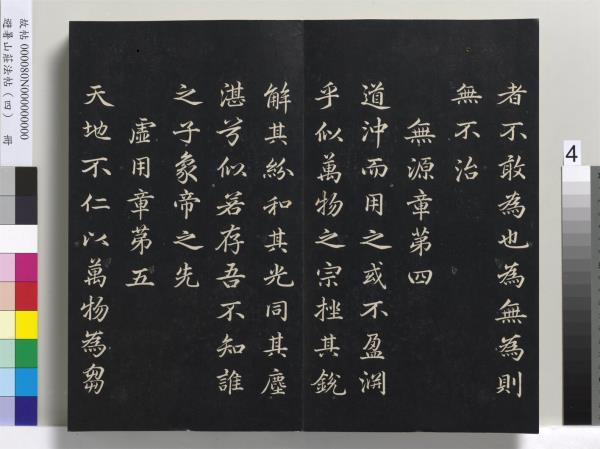 者不敢為也為無為則
無不治
無源章第四
道沖而用之或不盈淵
乎似萬物之宗挫其銳
解其紛和其光同其塵
湛兮似若存吾不知誰
之子象帝之先
虛用章第五
天地不仁以萬物為芻
故帖 000080N000000000
避暑山莊法帖(四) 冊
4